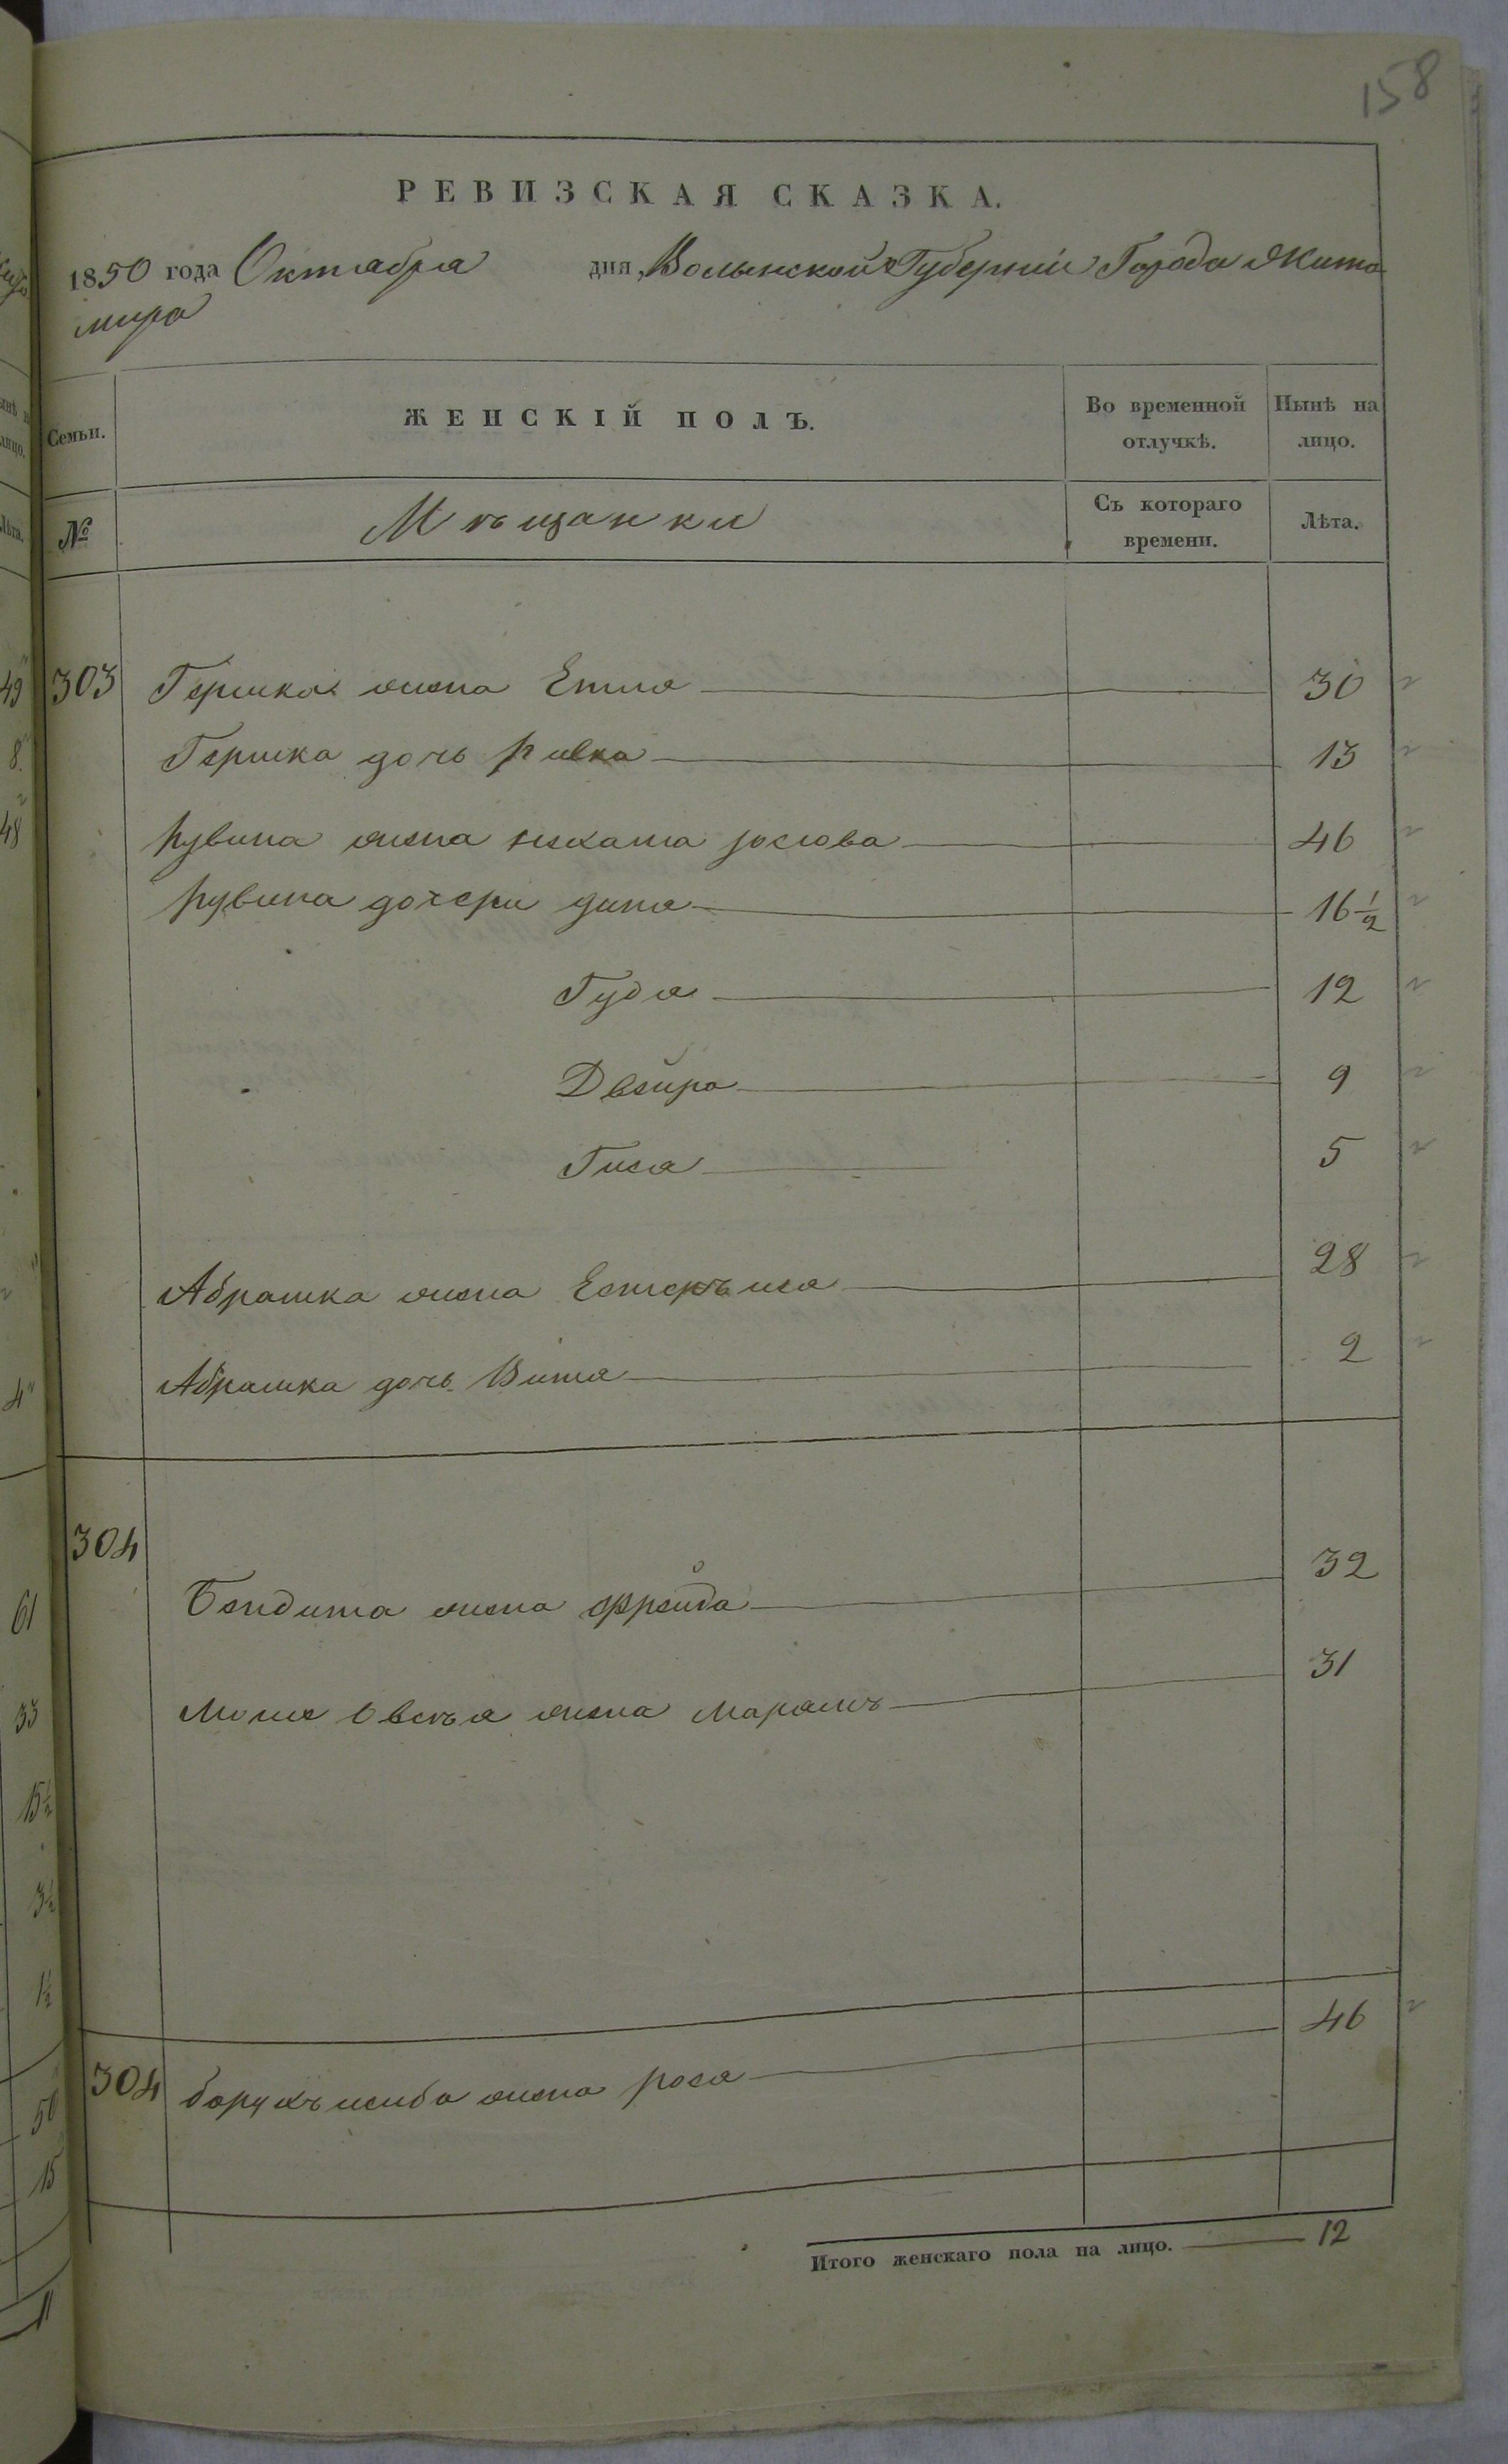 158
РЕВИЗСКАЯ СКАЗКА.
1850 года Октября дня, Волынской Губерніи Города Жито
мира
Семьи. ЖЕНСКІЙ ПОЛЪ. Во временной отлучкѣ. Нынѣ на лицо.
№ Мѣщанки Съ котораго времени. Лѣта.
303 Гершка жена Етля 30
Гершка дочь Ривка 13
Рувина жена Нехама Іосіова 46
Рувина дочери Дина 16 1/2
Гудя 12
Двейра 9
Гися 5
Абрашка жена 28
Абрашка дочь Витя 2
304
Бендита жена Фрейда 32
Мошe Овсѣя жена Марямъ 31
304 Борухъ Лейба жена Рося 46
Итого женскаго пола на лицо. 12